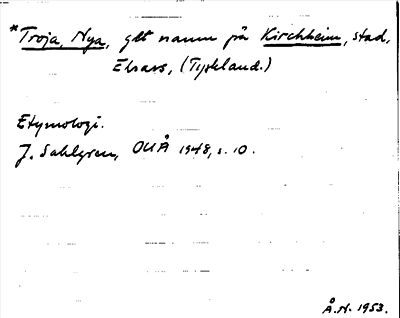 *Troja, Nya, glt namn på Kirchheim, stad,
Elsass, (Tyskland.)
Etymologi.
J. Sahlgren, OUÅ 1948, s. 10.
Å.H. 1953.